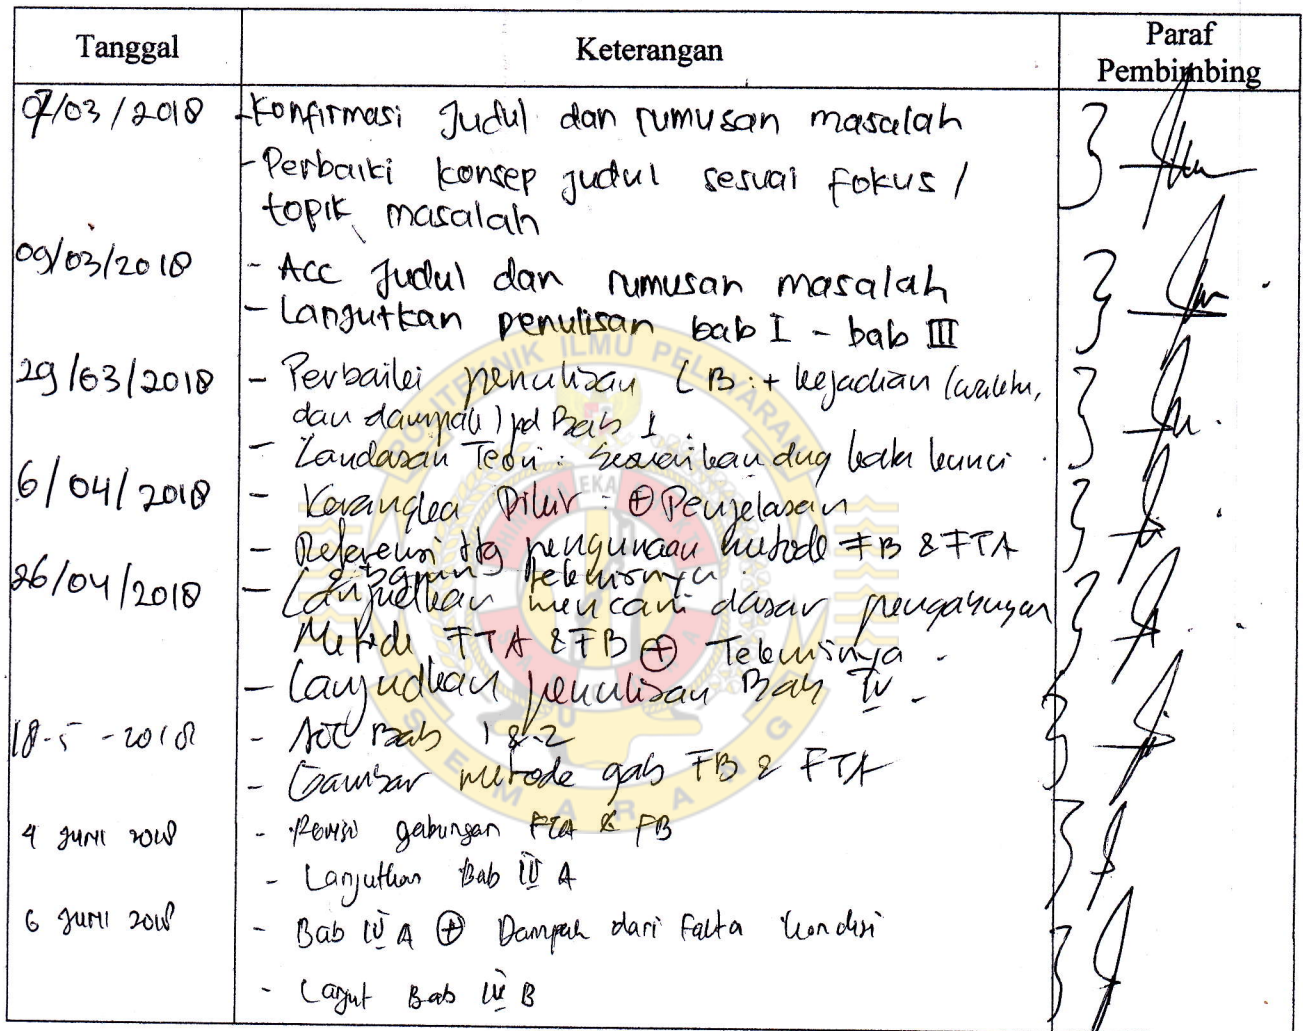 Tanggal Keterangan Paraf Pembimbing
07/03/2018 - Konfirmasi Judul dan rumusan masalah
- Perbaiki konsep judul sesuai fokus /
topik masalah
09/03/2018 - Acc Judul dan rumusan masalah
- Lanjutkan penulisan bab I - bab III
29/03/2018 - Perbaiki penulisan LB : + kejadian (waktu,
dan dampak) pd Bab 1.
- Landasan Teori : Sesuaikan dng kata kunci.
6/04/2018 - Kerangka Pikir : ⊕ Penjelasan
- Referensi ttg pengunaan metode FB & FTA
teknisnya.
26/04/2018 - Lanjudkan mencari dasar pengabungan
Metode FTA & FB ⊕ Teknisnya.
- Lanjudkan penulisan Bab IV.
18-5-2018 - ACC Bab 1 & 2
- Gambar metode gab FB & FTA
4 Juni 2018 - Revisi gabungan FTA & FB
- Lanjutkan Bab IV A
6 Juni 2018 - Bab IV A ⊕ Dampak dari Fakta kondisi
- Lanjut Bab IV B
POLITEKNIK ILMU PELAYARAN
SEMARANG